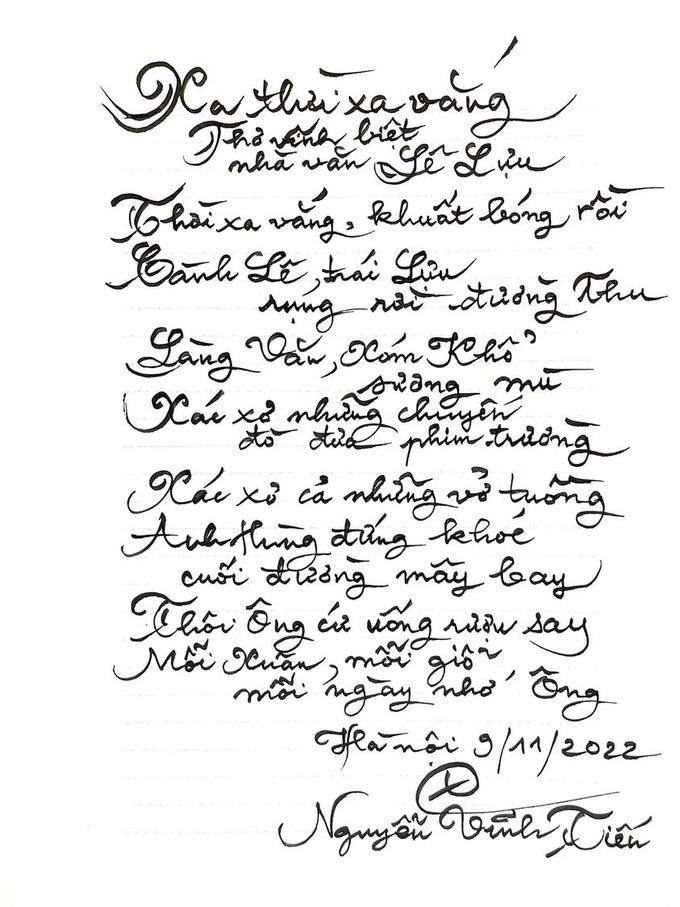 Xa thời xa vắng
Thơ vĩnh biệt
nhà văn Lê Lựu
Thời xa vắng, khuất bóng rồi
Cành Lê, trái Lựu
rụng rơi đường Thu
Làng Văn, Xóm Khổ
sương mù
Xác xơ những chuyến
đò đưa phim trường
Xác xơ cả những vở tuồng
Anh Hùng đứng khóc
cuối đường mây bay
Thôi Ông cứ uống rượu say
Mỗi Xuân, mỗi giỗ
mỗi ngày nhớ Ông
Hà nội 9/11/2022
Nguyễn Vĩnh Tiến